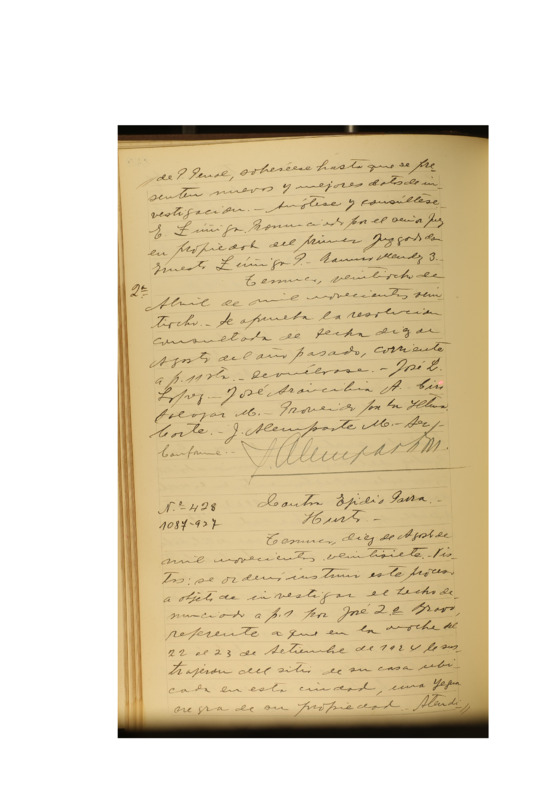 de P. Penal, sobreséese hasta que se pre-
senten nuevos y mejores datos de in-
vestigación.- Anótese y consúltese.-
E Zúñiga Pronunciado por el señor juez
en propiedad del primer Juzgado don
Ernesto Zúñiga P. - Ramiro Mendez 3.
Temuco, veintiocho de
2ª
Abril de mil novecientos vein
tiocho.- Se aprueba la resolución
consultada de fecha diez de
Agosto del año pasado, corriente
a p. 11 vta.- Devuélvase.- José L.
Lopez.- José Arancibia A.
Salazar M.- Proveido por la Iltma
Corte.- J. Alemparte M.-
Conforme.-
J Alemparte M.
N.º- 428
1087-927
Contra Ejidio Parra.-
Hurto-
Temuco, diez de Agosto de
mil novecientos veintisiete.- Vis-
tos: se ordenó instruir este proceso
a objeto de investigar el hecho de-
nunciado a p. 1 por José 2.º Bravo,
referente a que en la noche del
22 al 23 de Setiembre de 1924 le sus-
trajeron del sitio de su casa ubi-
cada en esta ciudad, una yegua
negra de su propiedad. Atendi-